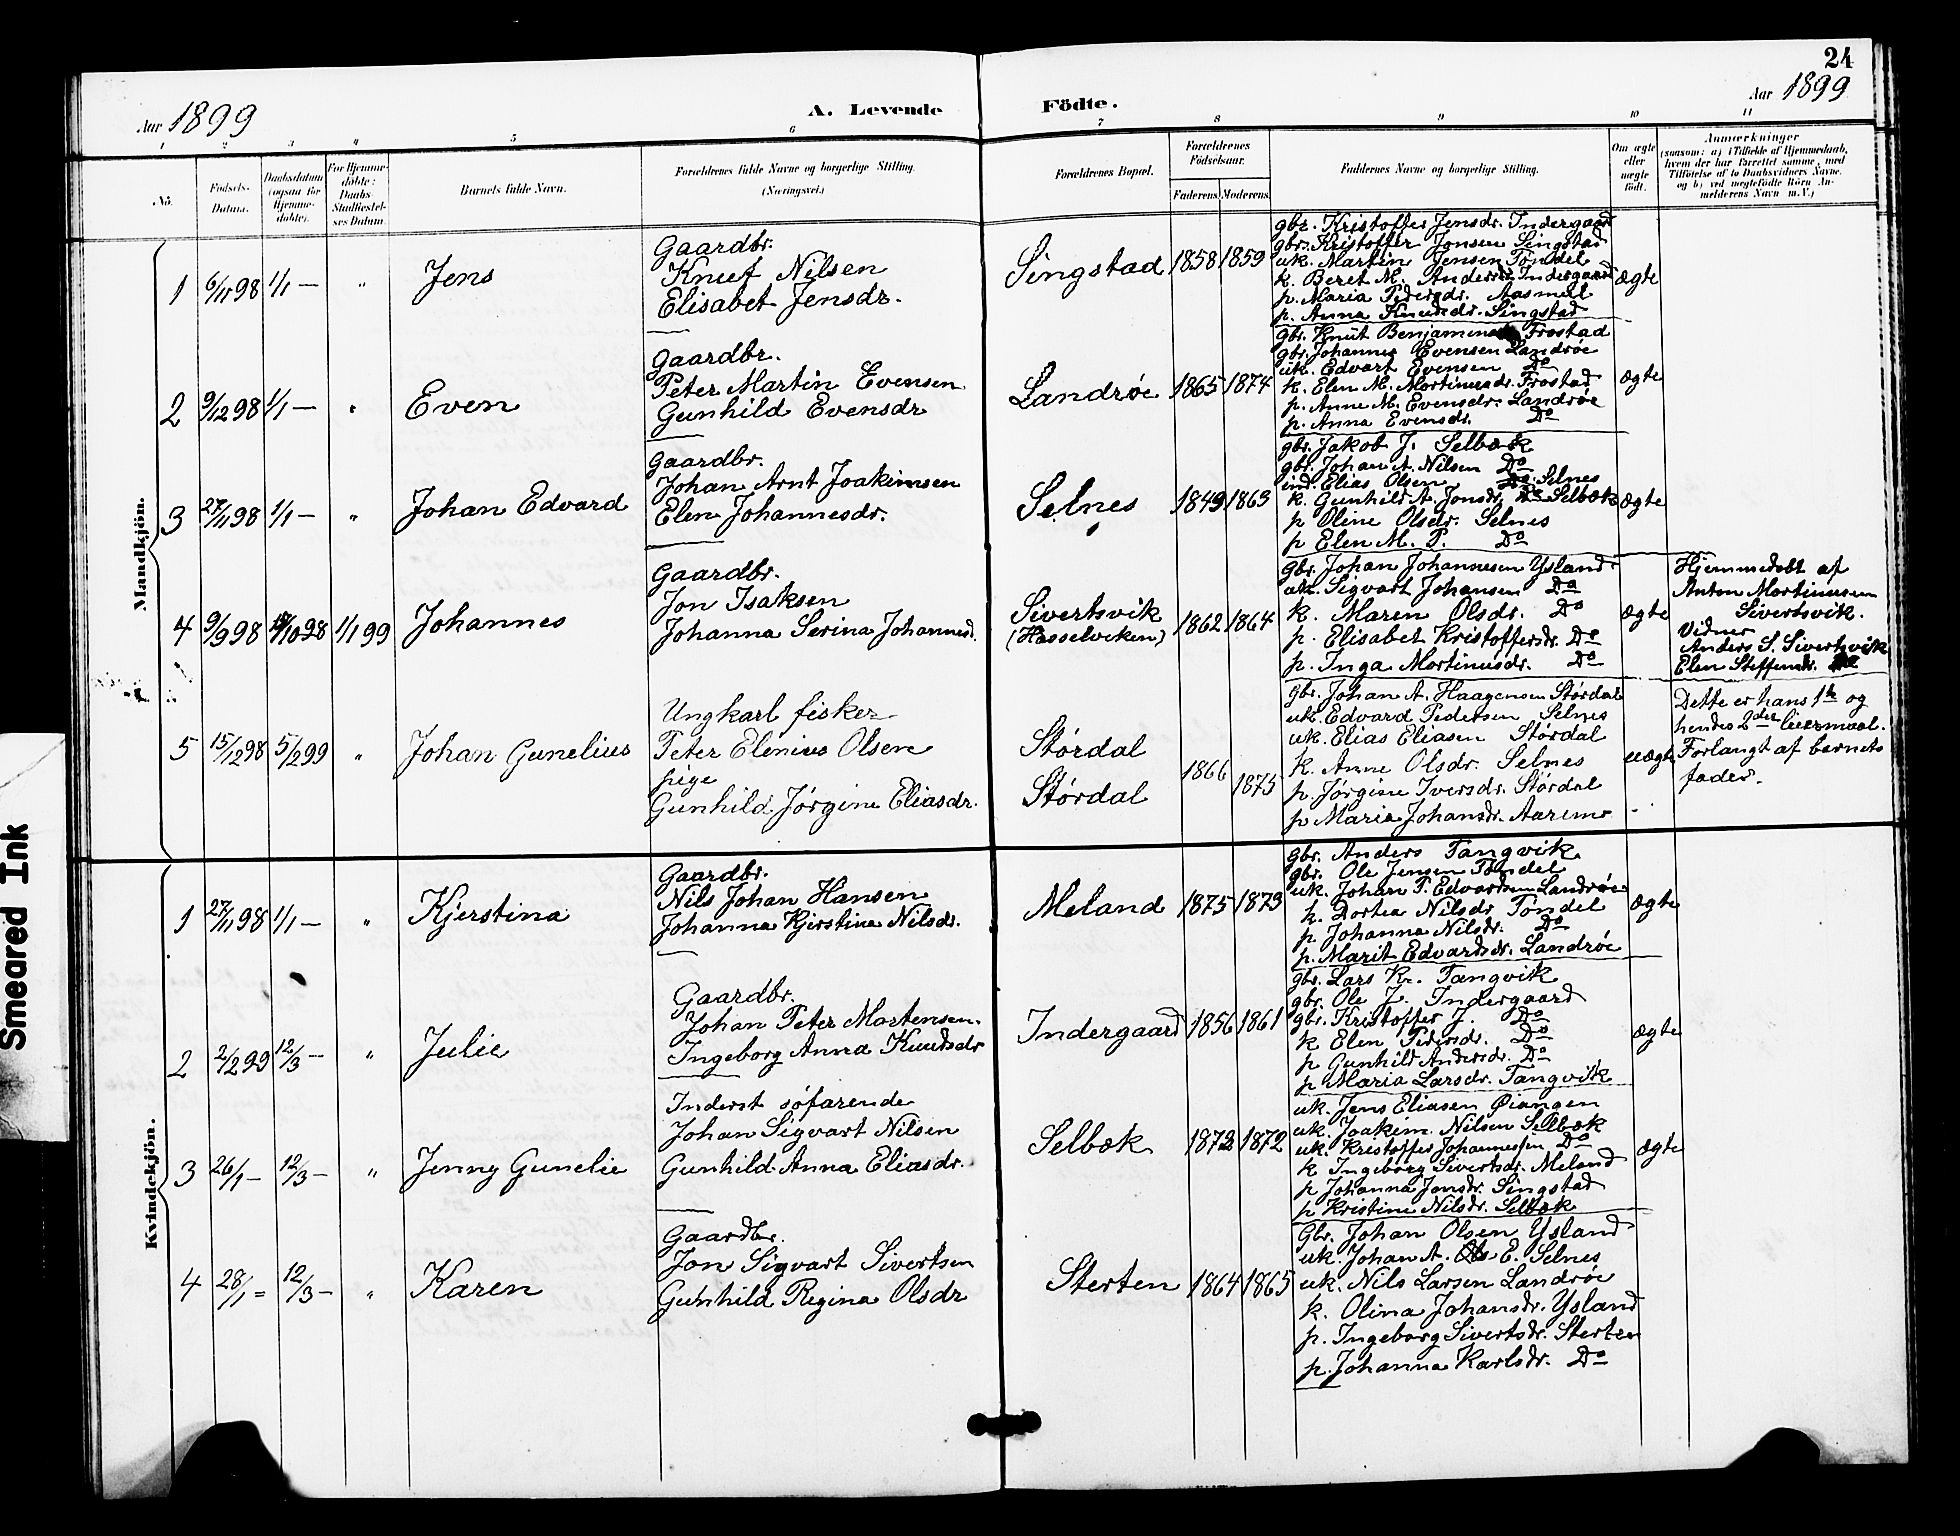 24
Aar 1899
A. Levende Födte.
Aar 1899
1 2 3 4 5 6 7 8 9 10 11
No.
Födsels-Datum.
Daabsdatum (ogsaa for Hjemmedöbte).
For Hjemmedöbte: Daabs Stadfæstelses Datum.
Barnets fulde Navn.
Forældrenes fulde Navne og borgerlige Stilling.
(Næringsvei.)
Forældrenes Bopæl.
Forældrenes Födselsaar.
Faderens. Moderens.
Faddernes Navne og borgerlige Stilling.
Om ægte eller uægte födt.
Anmærkninger
(saasom: a) i Tilfælde af Hjemmedaab, hvem der har forrettet samme, med Tilföielse af to Daabsvidners Navne, og b) ved uægtefödte Börn Anmelderens Navn m.V.)
Mandkjön.
1 6/11 98 1/1 — "
Jens
Gaardbr.
Knut Nilsen
Elisabet Jensdr.
Singstad 1858 1859
gbr. Kristoffer Jensdr. Indergaard
gbr. Kristoffer Jonsen Singstad
uk. Martin Jensen Tøndel
k. Beret M. Andersdr. Indergaard
p. Maria Pedersdr. Aasmul
p. Anna Knudsdr. Singstad
ægte
2 9/12 98 1/1 — "
Even
Gaardbr.
Peter Martin Evensen
Gunhild Evensdr
Landrøe 1865 1874
gbr. Knut Benjamins Frostad
gbr. Johannes Evensen Landrøe
uk. Edvart Evensen Do
k. Elen M. Martinusdr. Frostad
p. Anne M. Evensdr. Landrøe
p. Anna Evensdr. Do
ægte
3 27/11 98 1/1 — "
Johan Edvard
Gaardbr.
Johan Arnt Joakimsen
Elen Johannesdr.
Selnes 1849 1863
gbr. Jakob J. Selbæk
gbr. Johan A. Nilsen Do
ind. Elias Olsen Selnes
k. Gunhild A. Jonsdr. Selbæk
p Oline Olsdr. Selnes
p Elen M. P. Do
ægte
4 9/9 98 10 98 1/1 99
Johannes
Gaardbr.
Jon Isaksen
Johanna Serina Johannesd.
Sivertsvik
(Hasselviken) 1862 1864
gbr. Johan Johannesen Ysland
uk. Sigvart Johansen Do
k. Maren Olsdr. Do
p. Elisabet Kristoffersdr. Do
p. Inga Martinusdr. Do
ægte
Hjemmedøbt af
Anton Martinusen
Sivertsvik.
Vidner
Anders S. Sivertsvik
Elen Steffensdr. Do
5 15/12 98 5/2 99 "
Johan Gunelius
Ungkarl fisker
Peter Elenius Olsen
pige
Gunhild Jørgine Eliasdr.
Størdal
Størdal
1866
1875
gbr. Johan A. Haagensen Størdal
uk. Edvard Pedersen Selnes
uk. Elias Eliasen Størdal
k. Anne Olsdr. Selnes
p. Jørgine Iversdr. Størdal
p Maria Johansdr. Aarem
uægte
Dette er hans 1te og
hendes 2det leiermaal.
Forlangt af barnets
fader.
Kvindekjön.
1 27/11 98 1/1 — "
Kjerstina
Gaardbr.
Nils Johan Hansen
Johanna Kjerstina Nilsdr.
Meland 1875 1873
gbr. Anders Tangvik
gbr. Ole Jensen Tøndel
uk. Johan P. Edvardsen Landrøe
k. Dortea Nilsdr. Tøndel
p Johanna Nilsdr. Do
p. Marit Edvardsdr. Landrøe
ægte
2 2/2 99 12/3 — "
Julie
Gaardbr.
Johan Peter Mortensen.
Ingeborg Anna Knudsdr
Indergaard 1856 1861
gbr. Lars K. Tangvik
gbr. Ole J. Indergaard
gbr. Kristoffer J. Do
k Elen Pedersdr. Do
p Gunhild Andersdr. Do
p Maria Larsdr. Tangvik
ægte
3 26/1 — 12/3 — "
Jenny Gunelie
Inderst søfarende
Johan Sigvart Nilsen
Gunhild Anna Eliasdr.
Selbæk 1872 1872
uk. Jens Eliasen Øiangen
uk. Joakim Nilsen Selbæk
uk. Kristoffer Johannessen Do
k Ingeborg Sivertsdr. Meland
p Johanna Jonsdr. Singstad
p Kristine Nilsdr. Selbæk
ægte
4 28/1 = 12/3 — "
Karen
Gaardbr.
Jon Sigvart Sivertsen
Gunhild Regina Olsdr
Sterten 1864 1865
Gbr. Johan Olsen Ysland
uk. Johan A. E. Selnes
uk. Nils Larsen Landrøe
k. Olina Johansdr. Ysland
p. Ingeborg Sivertsdr. Sterten
p. Johanna Karlsdr. Do
Smeared Ink